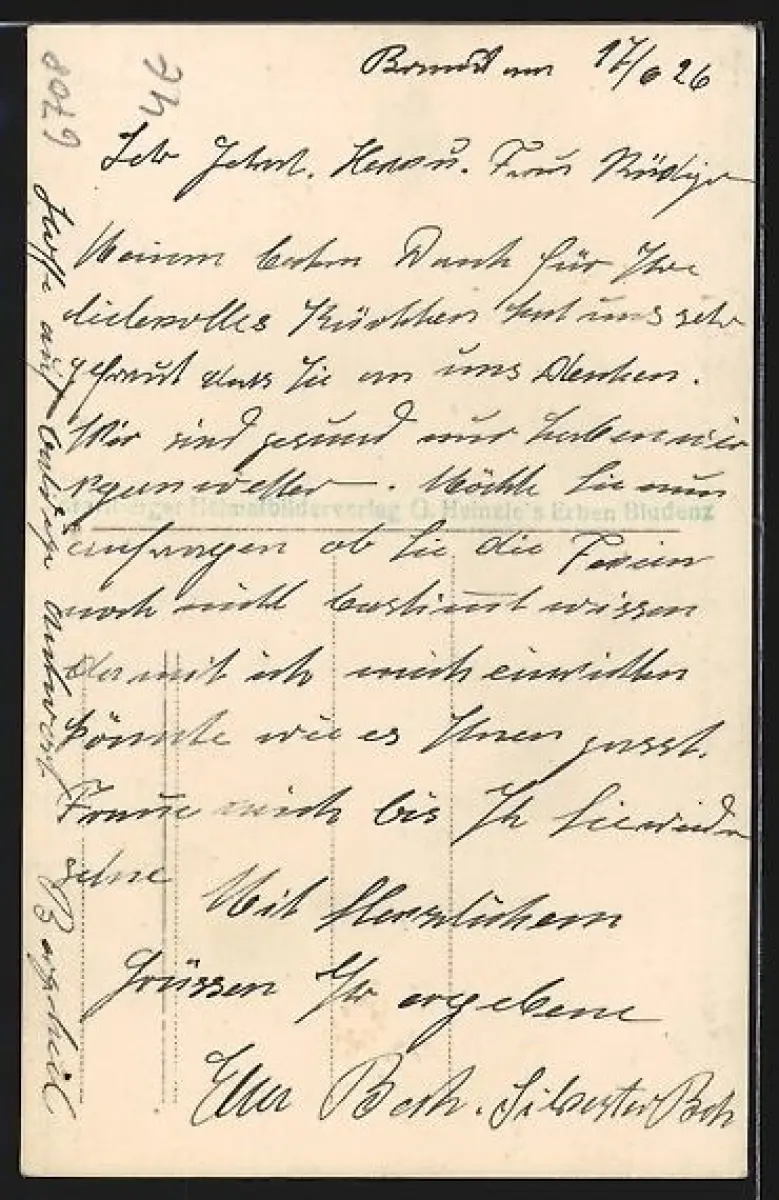 Brand am 17/6 26
Sehr Geehrt. Herr u. Frau Rüdiger
Meinen besten Dank für Ihre
liebevolles Kärtchen hat uns sehr
gefreut dass Sie an uns Denken.
Wir sind gesund nur haben wir
Regenwetter. Möchte Sie nun
anfragen ob Sie die Ferien
noch nicht bestimmt wissen
damit ich mich einrichten
könnte wie es Ihnen passt.
Freue mich bis Ich Sie wieder
sehe
Mit Herzlichem
Grüssen Ihr ergebene
Beck. Silvester Beck
Hoffe auf baldige Antwort Bergheil
8079
Heimatbilderverlag G. Heinzle's Erben Bludenz